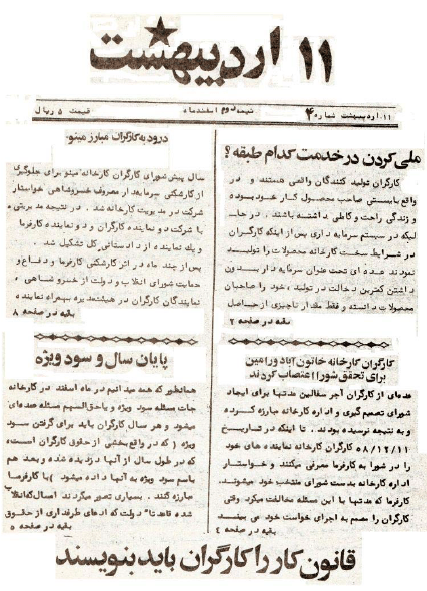 ۱۱ اردیبهشت
۱۱ اردیبهشت شماره ۴
نیمه دوم اسفندماه
قیمت ۵ ریال
ملی کردن در خدمت کدام طبقه ؟
کارگران تولید کنندگان واقعی هستند و در
واقع بایستی صاحب محصول کار خود بوده
و زندگی راحت و کاملی داشته باشند . در حا
لیکه در سیستم سرمایه داری پس از اینکه کارگران
در شرایط سخت کارخانه محصولات را تولید
نمودند عده ای تحت عنوان سرمایه دار بدون
داشتن کمترین دخالت در تولید ، خود را صاحبان
محصولات دانسته و فقط مقدار ناچیزی از حاصل
بقیه در صفحه ۲
کارگران کارخانه خاتون آباد ورامین
برای تحقق شورا اعتصاب کردند
عده‌ای از کارگران آجر سفالین مدتها برای ایجاد
شورای تصمیم گیری و اداره کارخانه مبارزه کرده
و به نتیجه نرسیده بودند . تا اینکه در تاریخ
۵۸/۱۲/۱۱ کارگران کارخانه نماینده های خود
را در شورا به کارفرما معرفی میکنند و خواستار
اداره کارخانه بدست شورای منتخب خود میشوند.
کارفرما که مدتها با این مسئله مخالفت میکرد وقتی
کارگران را مصمم به اجرای خواست خود می بیند
بقیه در صفحه ٤
درود به کارگران مبارز مینو
سال پیش شورای کارگران کارخانه مینو برای جلوگیری
از کارشکنی سرمایه دار معروف خسروشاهی خواستار
شرکت در مدیریت کارخانه شد . در نتیجه مدیریتی
با شرکت دو نماینده کارگران و دو نماینده کارفرما
و یک نماینده از دادستانی کل تشکیل شد .
پس از چند ماه در اثر کارشکنی کارفرما و دفاع و
حمایت شورای انقلاب و دولت از خسروشاهی ،
نمایندگان کارگران در هیئت مدیره بهمراه نماینده
بقیه در صفحه ۸
پایان سال و سود ویژه
همانطور که همه میدانیم در ماه اسفند در کارخانه
جات مسئله سود ویژه و یا حق السهم مسئله عده‌ای
میشود و هر سال کارگران باید برای گرفتن سود
ویژه ( که در واقع بخشی از حقوق کارگران است،
که در طول سال از آنها دزدیده شده و بعد هم
باسم سود ویژه به آنها داده میشود )با کارفرما
مبارزه کنند . بسیاری تصور میکردند امسال که انقلاب
شده قاعدتا" دولت که ادعای طرفداری از حقوق
بقیه در صفحه ۵
قانون کار را کارگران باید بنویسند